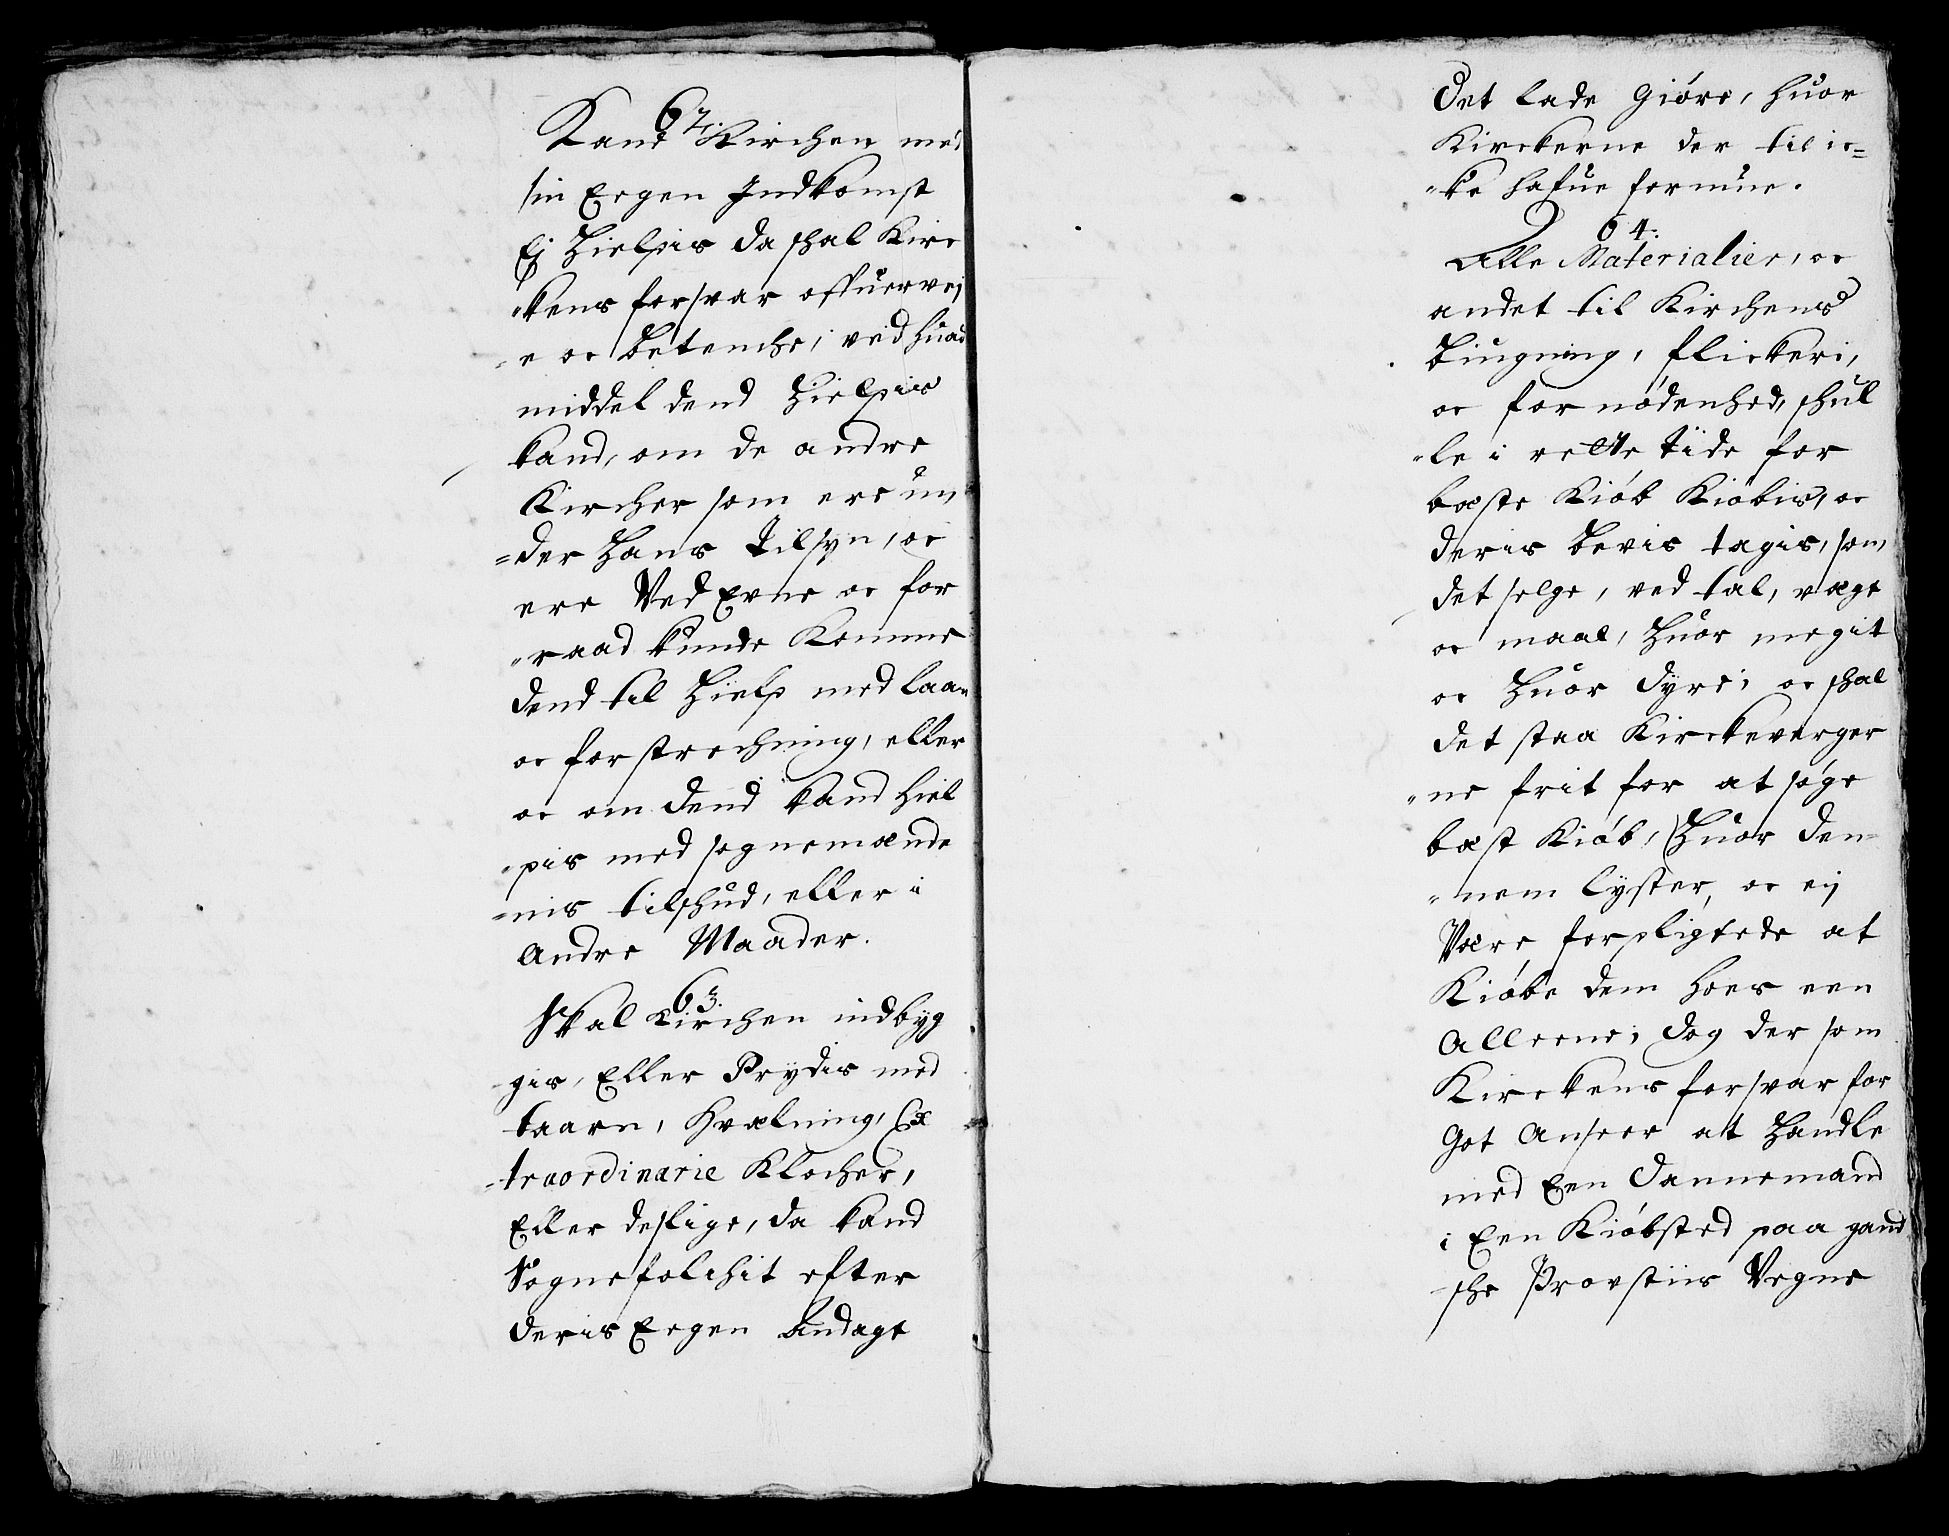 62.
Kand Kirchen med
sin Eegen Indkomst
Ej Hielpis da skal Kirc
"kens forsvar offuervej
"e oc betenche, ved huad
middel dend Hielpis
kand, om de andre
Kircher som ere un,
=der Hans Tilsyn, oc
ere Ved Evne oc for
"raad kunde Komme
dend til Hielp med laan
oc forstrechning, eller
oc om dend kand hiel
"pis med sognemænde
"nis tilskud, eller i
Andre Maader.
63.
Skal Kirchen indbyg
gis, Eller Prydis med
taarn, Hvælning, Ex
"traordinarie Klocher,
Eller deslige, da kand
Sognefolchit efter
deris Eegen Andagt
Det lade Giöre, huor
Kirckerne der til ic=
"ke hafue formue.
64.
Alle Materialier, oc
andet til Kirchens
Biugning, flickeri,
oc fornödenhed, skul
"le i rette tide for
bæste Kiöb Kiöbis, oc
deris bevis tagis, som
det selge, ved tal, vægt
oc maal, Huor megit
oc Huor dyre; oc skal
det staa Kirckeverger
"ne frit for at söge
bæst Kiöb, Huor den=
"nem lyster, oc eij
Være forpligtede at
Kiöbe dem hoes een
Alleene; dog der som
Kirckens forsvar for
Got Anseer at Handle
med Een Dannemand
i Een Kiöbsted paa gand
ske Provstiis Vegne